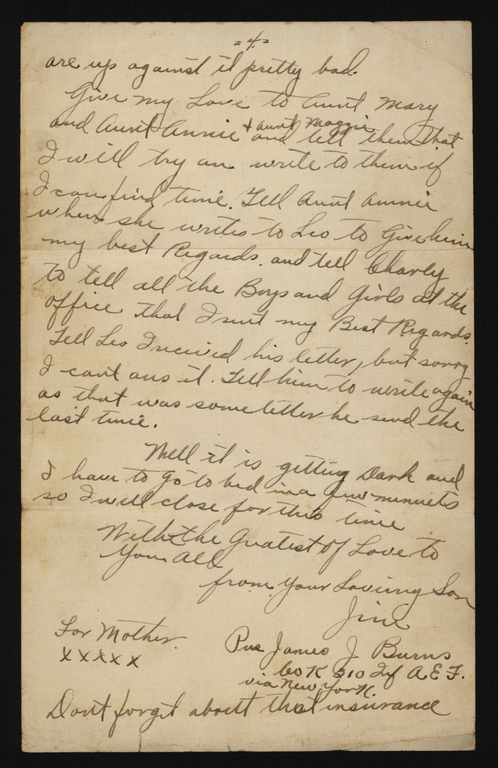 = 4 =
are up against it pretty bad.
Give my Love to Aunt Mary
and Aunt Annie + aunt Maggie and tell them that
I will try an write to them if
I can find time. Tell Aunt Annie
when she writes to Leo to Give him
my best Regards. and tell Charly
to tell all the Boys and Girls at the
office that I sent my Best Regards.
Tell Leo I received his letter, but sorry
I cant ans it. Tell him to write again
as that was some letter he send the
last time.
Well it is getting Dark and
I have to go to bed in a few minuets
so I will close for this time
With the Greatest of Love to
You All
from Your Loving Son
Jim
For Mother.
x x x x x
Pvt James J Burns
Co K 310 Inf A.E.F.
via New York.
Dont forget about that insurance